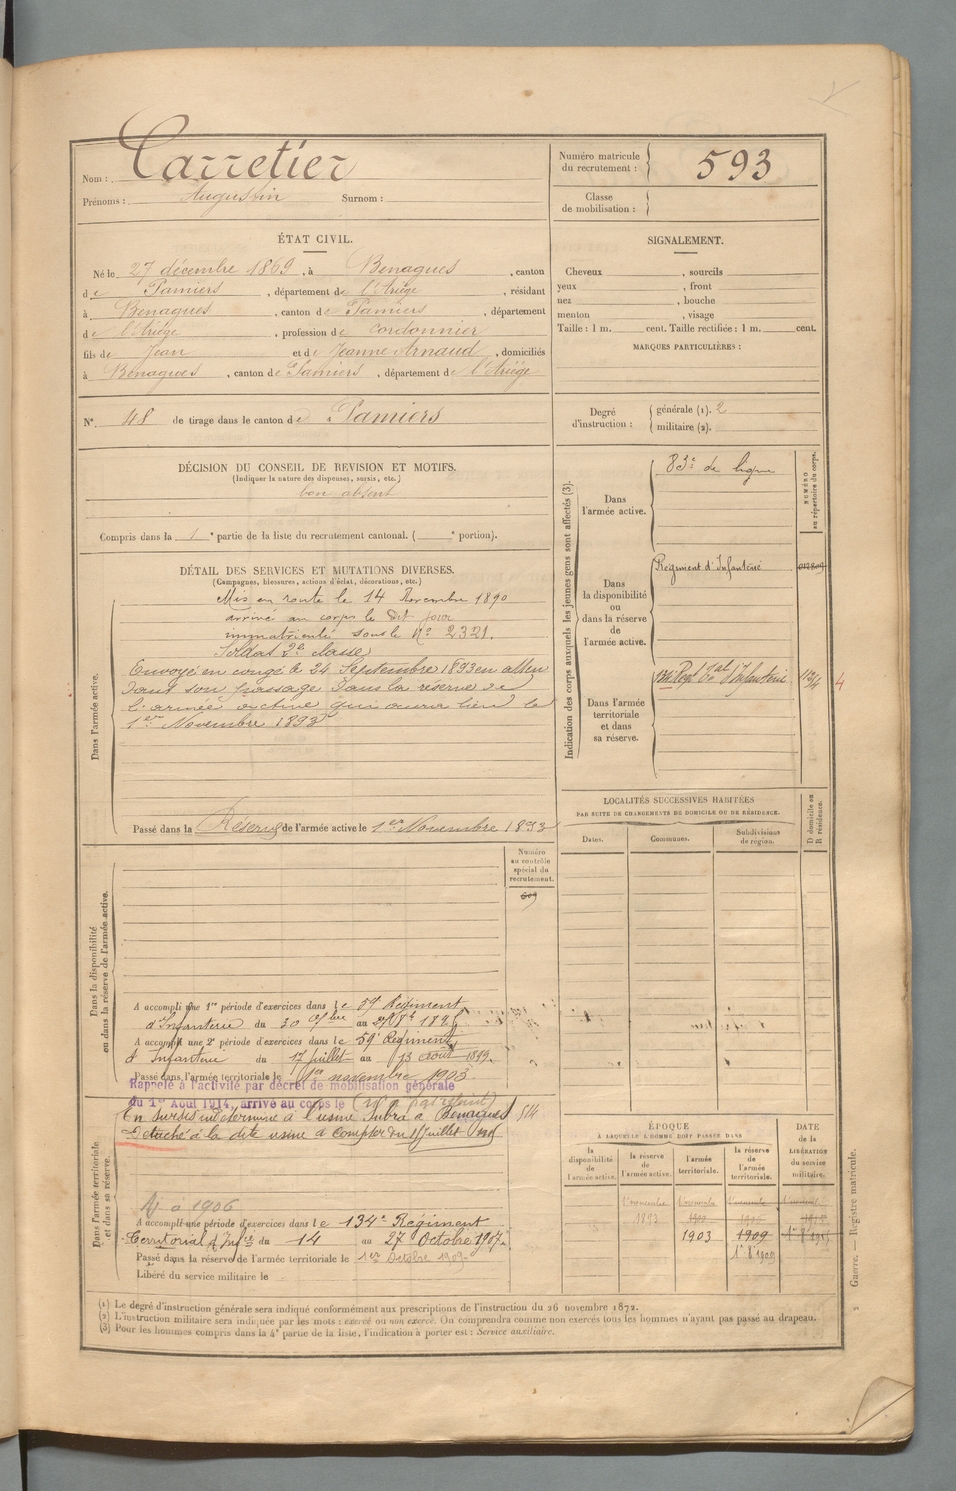 Nom : Carretier
Prénoms : Augustin Surnom :
Numéro matricule du recrutement : 593
Classe de mobilisation :
ÉTAT CIVIL.
Né le 27 décembre 1869, à Benagues, canton
de Pamiers, département de l'Ariège, résidant
à Benagues, canton de Pamiers, département
de l'Ariège, profession de cordonnier
fils de Jean et de Jeanne Arnaud, domiciliés
à Benagues, canton de Pamiers, département de l'Ariège
N° 48 de tirage dans le canton de Pamiers
SIGNALEMENT.
Cheveux , sourcils
yeux , front
nez , bouche
menton , visage
Taille : 1 m. cent. Taille rectifiée : 1 m. cent.
MARQUES PARTICULIÈRES :
Degré d'instruction : générale (1). 2
militaire (2).
DÉCISION DU CONSEIL DE REVISION ET MOTIFS.
(Indiquer la nature des dispenses, sursis, etc.)
bon absent
Compris dans la 1 e partie de la liste du recrutement cantonal. ( e portion).
DÉTAIL DES SERVICES ET MUTATIONS DIVERSES.
(Campagnes, blessures, actions d'éclat, décorations, etc.)
Dans l'armée active.
Mis en route le 14 Novembre 1890
arrivé au corps le dit jour
immatriculé sous le N° 2321.
Soldat 2e classe
Envoyé en congé le 24 Septembre 1893 en atten
dant son passage dans la réserve de
l'armée active qui aura lieu le
1er Novembre 1893
Passé dans la Réserve de l'armée active le 1er Novembre 1893
Indication des corps auxquels les jeunes gens sont affectés (3).
NUMÉRO au répertoire du corps.
Dans l'armée active.
83e de ligne
Dans la disponibilité ou dans la réserve de l'armée active.
Régiment d'Infanterie
Dans l'armée territoriale et dans sa réserve.
d'Infanterie
LOCALITÉS SUCCESSIVES HABITÉES
PAR SUITE DE CHANGEMENTS DE DOMICILE OU DE RÉSIDENCE.
D domicile ou R résidence.
Dates. Communes. Subdivisions de région.
Dans la disponibilité ou dans la réserve de l'armée active.
Numéro au contrôle spécial du recrutement.
A accompli une 1re période d'exercices dans le 59 Régiment
d'Infanterie du 30 au
A accompli une 2e période d'exercices dans le 59e Régiment
d'Infanterie du 17 juillet au 13 août
Passé dans l'armée territoriale le 1er novembre 1903
Dans l'armée territoriale et dans sa réserve.
Rappelé à l'activité par décret de mobilisation générale
du 1er Août 1914, arrivé au corps le
En sursis indéterminé à l'usine à Benagues 514
Détaché à la dite usine à compter du 1 Juillet
1906
A accompli une période d'exercices dans le 134e Régiment
Territorial d'Infie du 14 au 27 Octobre 1907.
Passé dans la réserve de l'armée territoriale le 1er Octobre 1909
Libéré du service militaire le
ÉPOQUE
À LAQUELLE L'HOMME DOIT PASSER DANS
la disponibilité de l'armée active.
la réserve de l'armée active.
l'armée territoriale.
la réserve de l'armée territoriale.
DATE de la LIBÉRATION du service militaire.
1893
1903 1909
Guerre. — Registre matricule.
(1) Le degré d'instruction générale sera indiqué conformément aux prescriptions de l'instruction du 26 novembre 1872.
(2) L'instruction militaire sera indiquée par les mots : exercé ou non exercé. On comprendra comme non exercés tous les hommes n'ayant pas passé au drapeau.
(3) Pour les hommes compris dans la 4e partie de la liste, l'indication à porter est : Service auxiliaire.